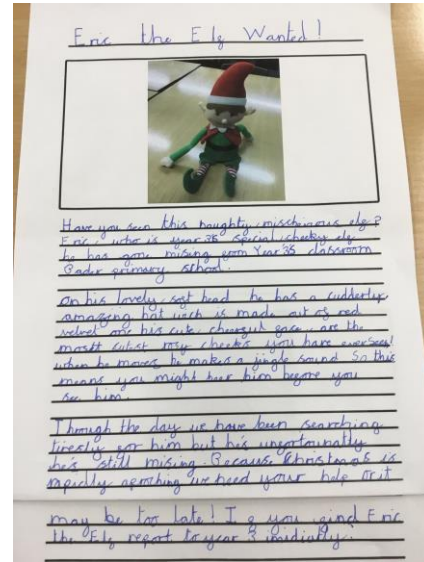 Eric the Elf Wanted!
Have you seen this naughty, misschivous elf?
Eric, who is year 3s special cheeky elf
he has gone mising from Year 3s classroom
Cader primary school.
On his lovely, soft head he has a cudderly,
amazing hat wich is made out of red
velvet and his cute, cheerful face, are the
mostt cutest rosy cheeks you have ever seen!
when he moves he makes a jingle sound So this
means you might hear him before you
see him.
Through the day we have been searching
tiresly for him but he's unfortuinatly
he's still mising. Because Christmas is
rapidly aproching we need your help or it
may be too late! If you find Eric
the Elf report to year 3 imidiatly.